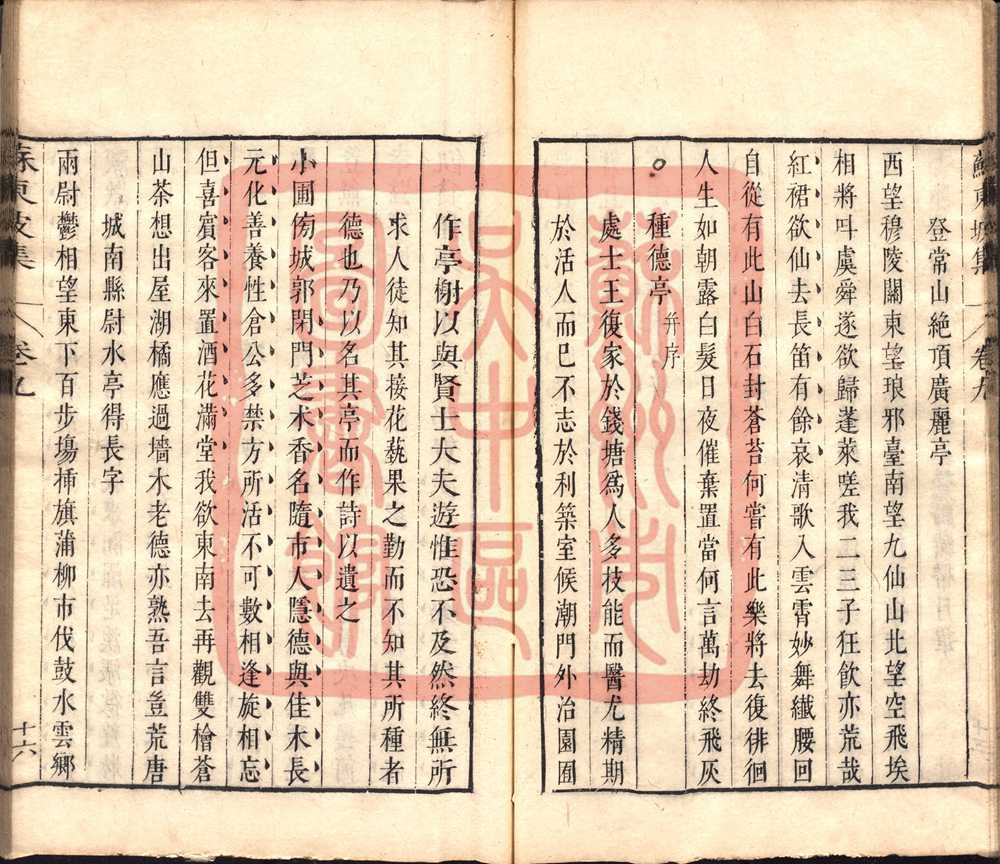 蘇東坡集 卷九
登常山絶頂廣麗亭
西望穆陵關東望琅邪臺南望九仙山北望空飛埃
相將呌虞舜遂欲歸蓬萊嗟我二三子狂飲亦荒哉
紅裙欲仙去長笛有餘哀清歌入雲霄妙舞纖腰回
自從有此山白石封蒼苔何嘗有此樂將去復徘徊
人生如朝露白髮日夜催棄置當何言萬劫終飛灰
種德亭 并序
處士王復家於錢塘爲人多技能而醫尤精期
於活人而巳不志於利築室候潮門外治園圃
作亭榭以與賢士大夫遊惟恐不及然終無所
求人徒知其接花蓺果之勤而不知其所種者
德也乃以名其亭而作詩以遺之
小圃傍城郭閉門芝术香名隨市人隱德與佳木長
元化善養性倉公多禁方所活不可數相逢旋相忘
但喜賓客來置酒花滿堂我欲東南去再觀雙檜蒼
山茶想出屋湖橘應過墻木老德亦熟吾言豈荒唐
城南縣尉水亭得長字
兩尉鬱相望東下百步塲揷旗蒲柳市伐鼓水雲鄉
蘇東坡集 卷九 十六
蘇州市吳中區圖書館